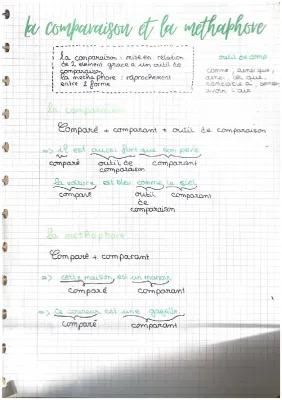 la comparaison et la méthaphore
la comparaison : mise en relation
de 2 element grace a un outil de
comparaison
la méthaphore : raprochement
entre 2 forme
outil de comp
comme, ainsi que,
ainsi, tel que,
avoir
la comparaison
Comparé + comparant + outil de comparaison
=> il est aussi fort que son père
comparé outil de comparant
comparaison
la voiture est bleu comme le ciel
comparé outil comparant
de
comparaison
la méthaphore
Comparé + comparant
=> cette maison est un manoir
comparé comparant
=> ce coureur est une gazelle
comparé comparant